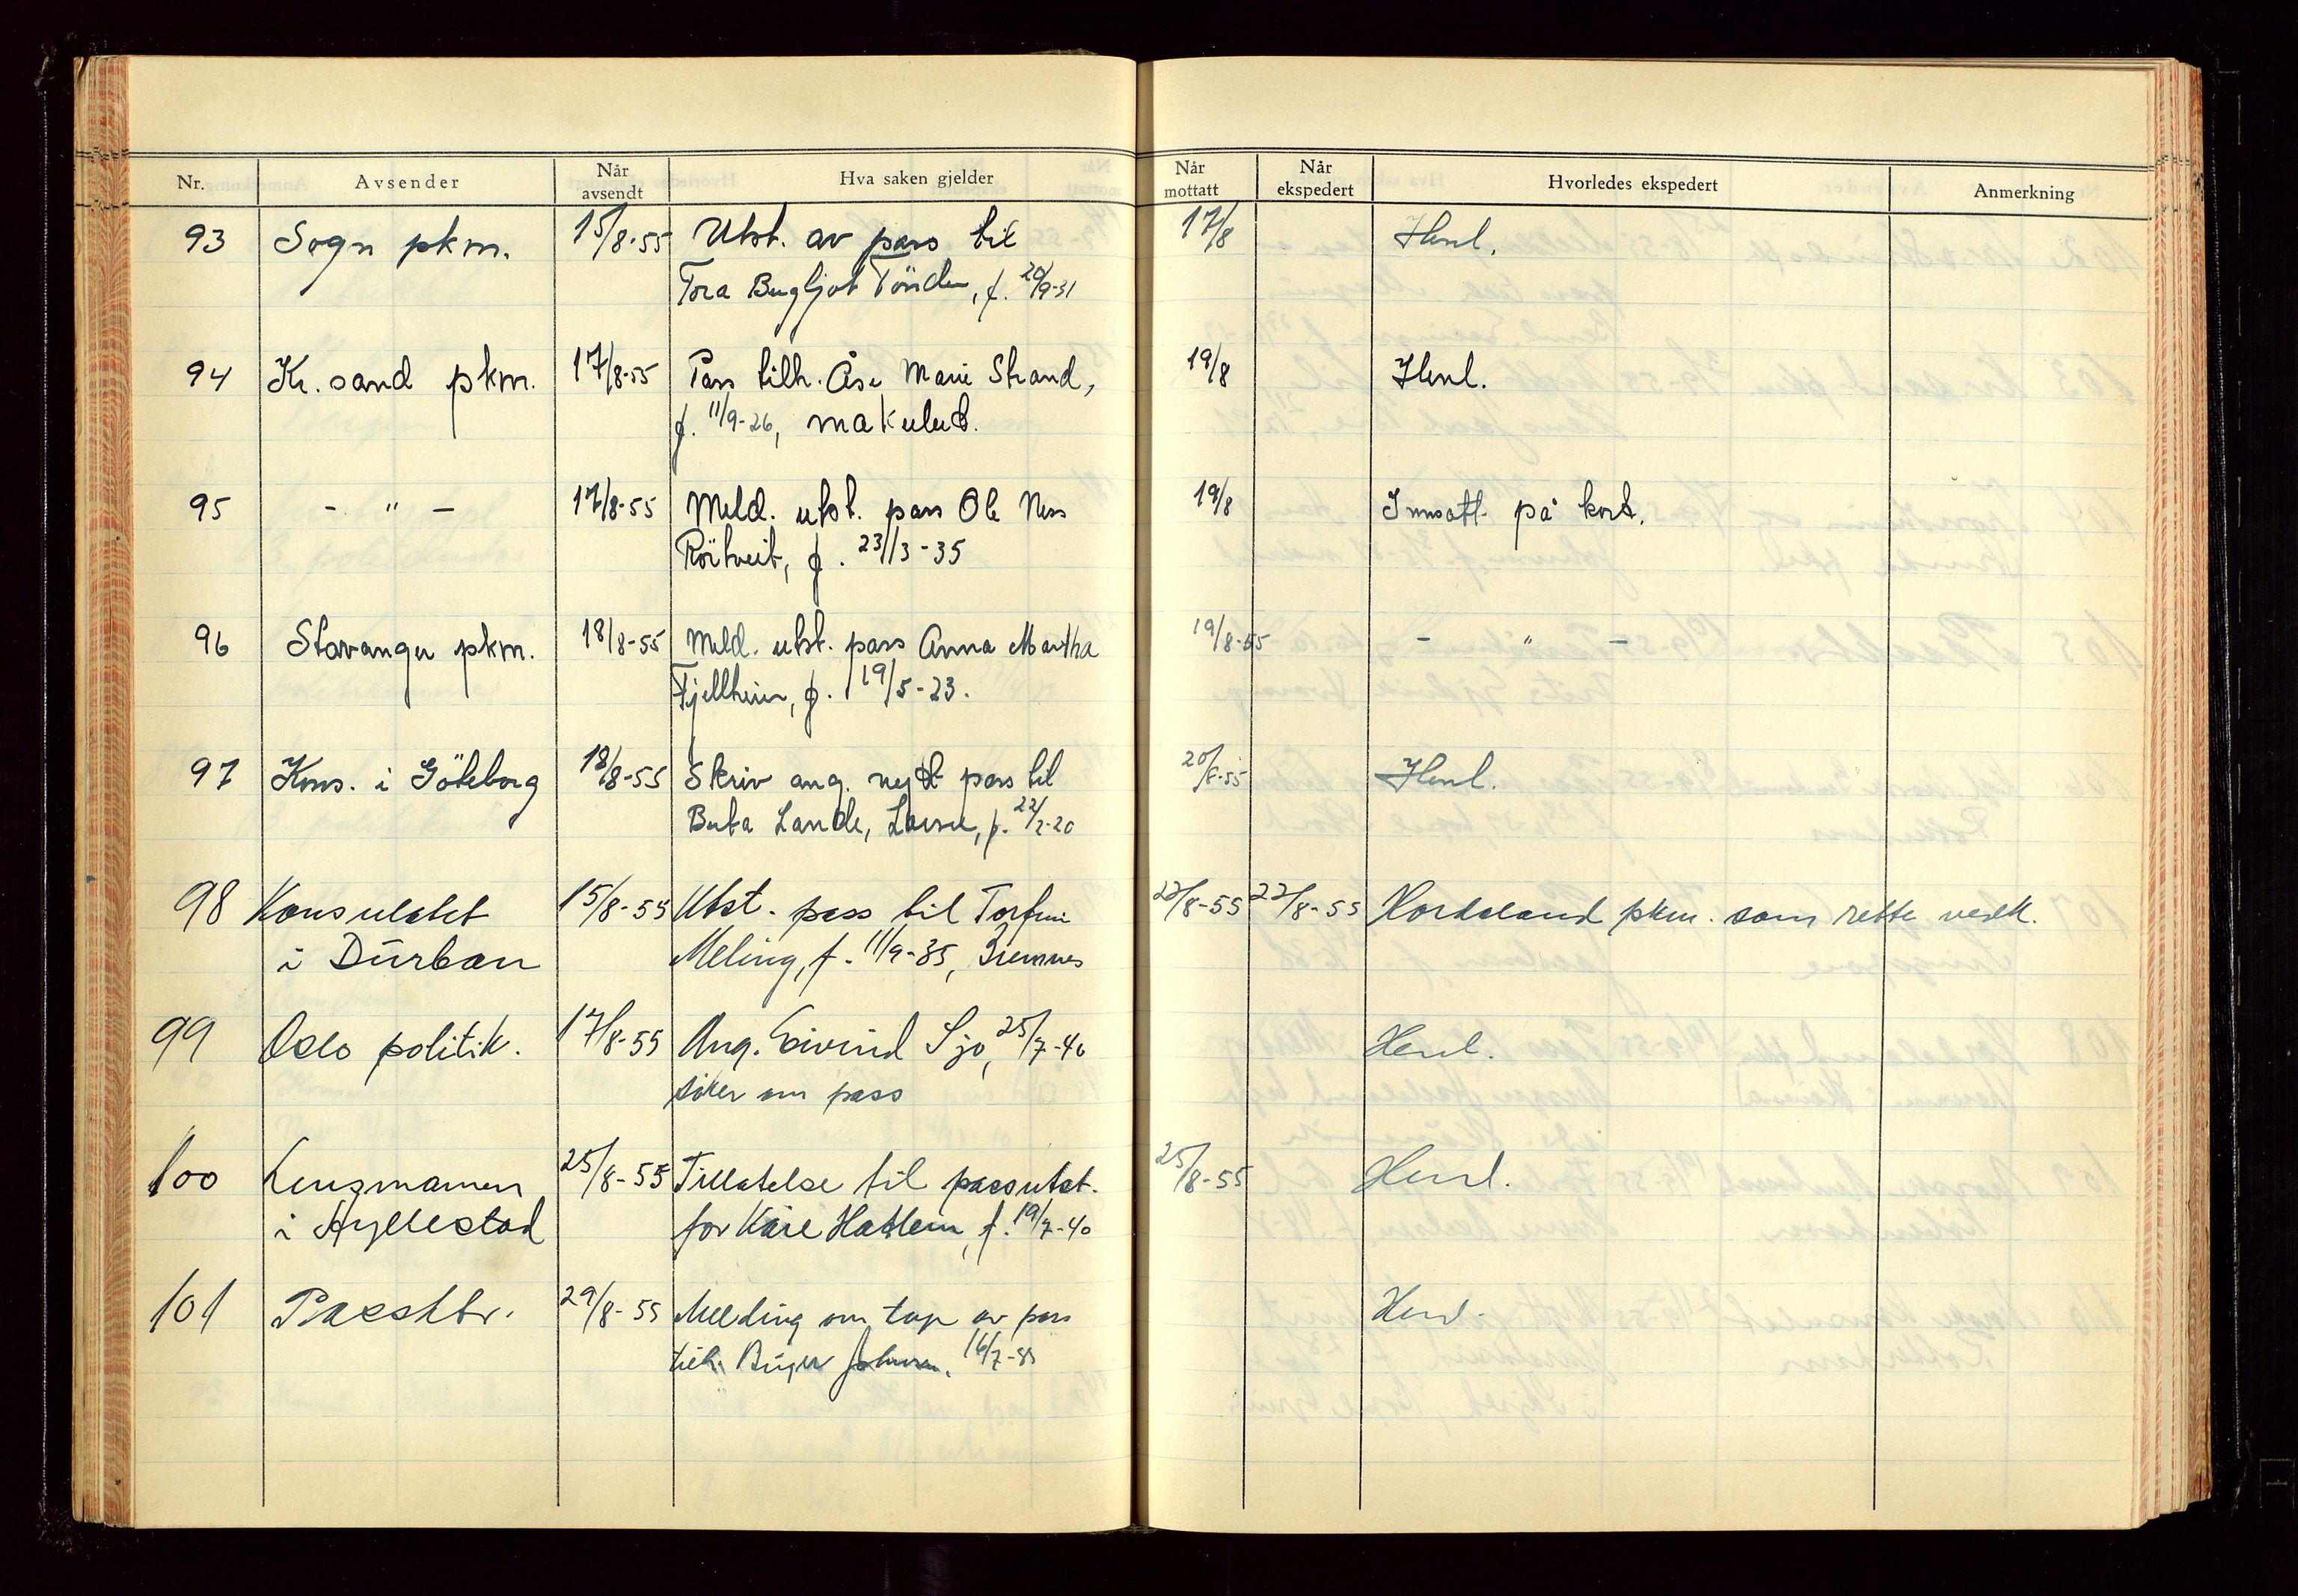 Nr. Avsender Når avsendt Hva saken gjelder Når mottatt Når ekspedert Hvorledes ekspedert Anmerkning
93 Sogn pkm. 15/8-55 Utst. av pass til 17/8 Henl.
Tora Bergljot Tönder, f. 20/9-31
94 Kr.sand pkm. 17/8-55 Pass tilh. Åse Marie Strand, 19/8 Henl.
f. 11/9-26, makulert.
95 - " - 17/8-55 Meld. utst. pass Ole Ness 19/8 Innsatt på kort.
Röitveit, f. 23/3-35
96 Stavanger pkm. 18/8-55 Meld. utst. pass Anna Martha 19/8-55 - " -
Fjellheim, f. 19/5-23.
97 Kons. i Göteborg 18/8-55 Skriv ang. nytt pass til 20/8-55 Henl.
Berta Lande, f. 22/2-20
98 Konsulatet 15/8-55 Utst. pass til Torfinn 22/8-55 22/8-55 Hordaland pkm. som rette vedk.
i Durban Meling, f. 11/9-35, Bremnes
99 Oslo politik. 17/8-55 Ang. Eivind Sjo, 25/7-40 Henl.
söker om pass
100 Lensmannen 25/8-55 Tillatelse til passutst. 25/8-55 Henl.
i Hyllestad for Kåre Hatlem, f. 19/7-40
101 Passktr. 29/8-55 Melding om tap av pass Henl.
tilh. Birger Johnsen, 16/7-